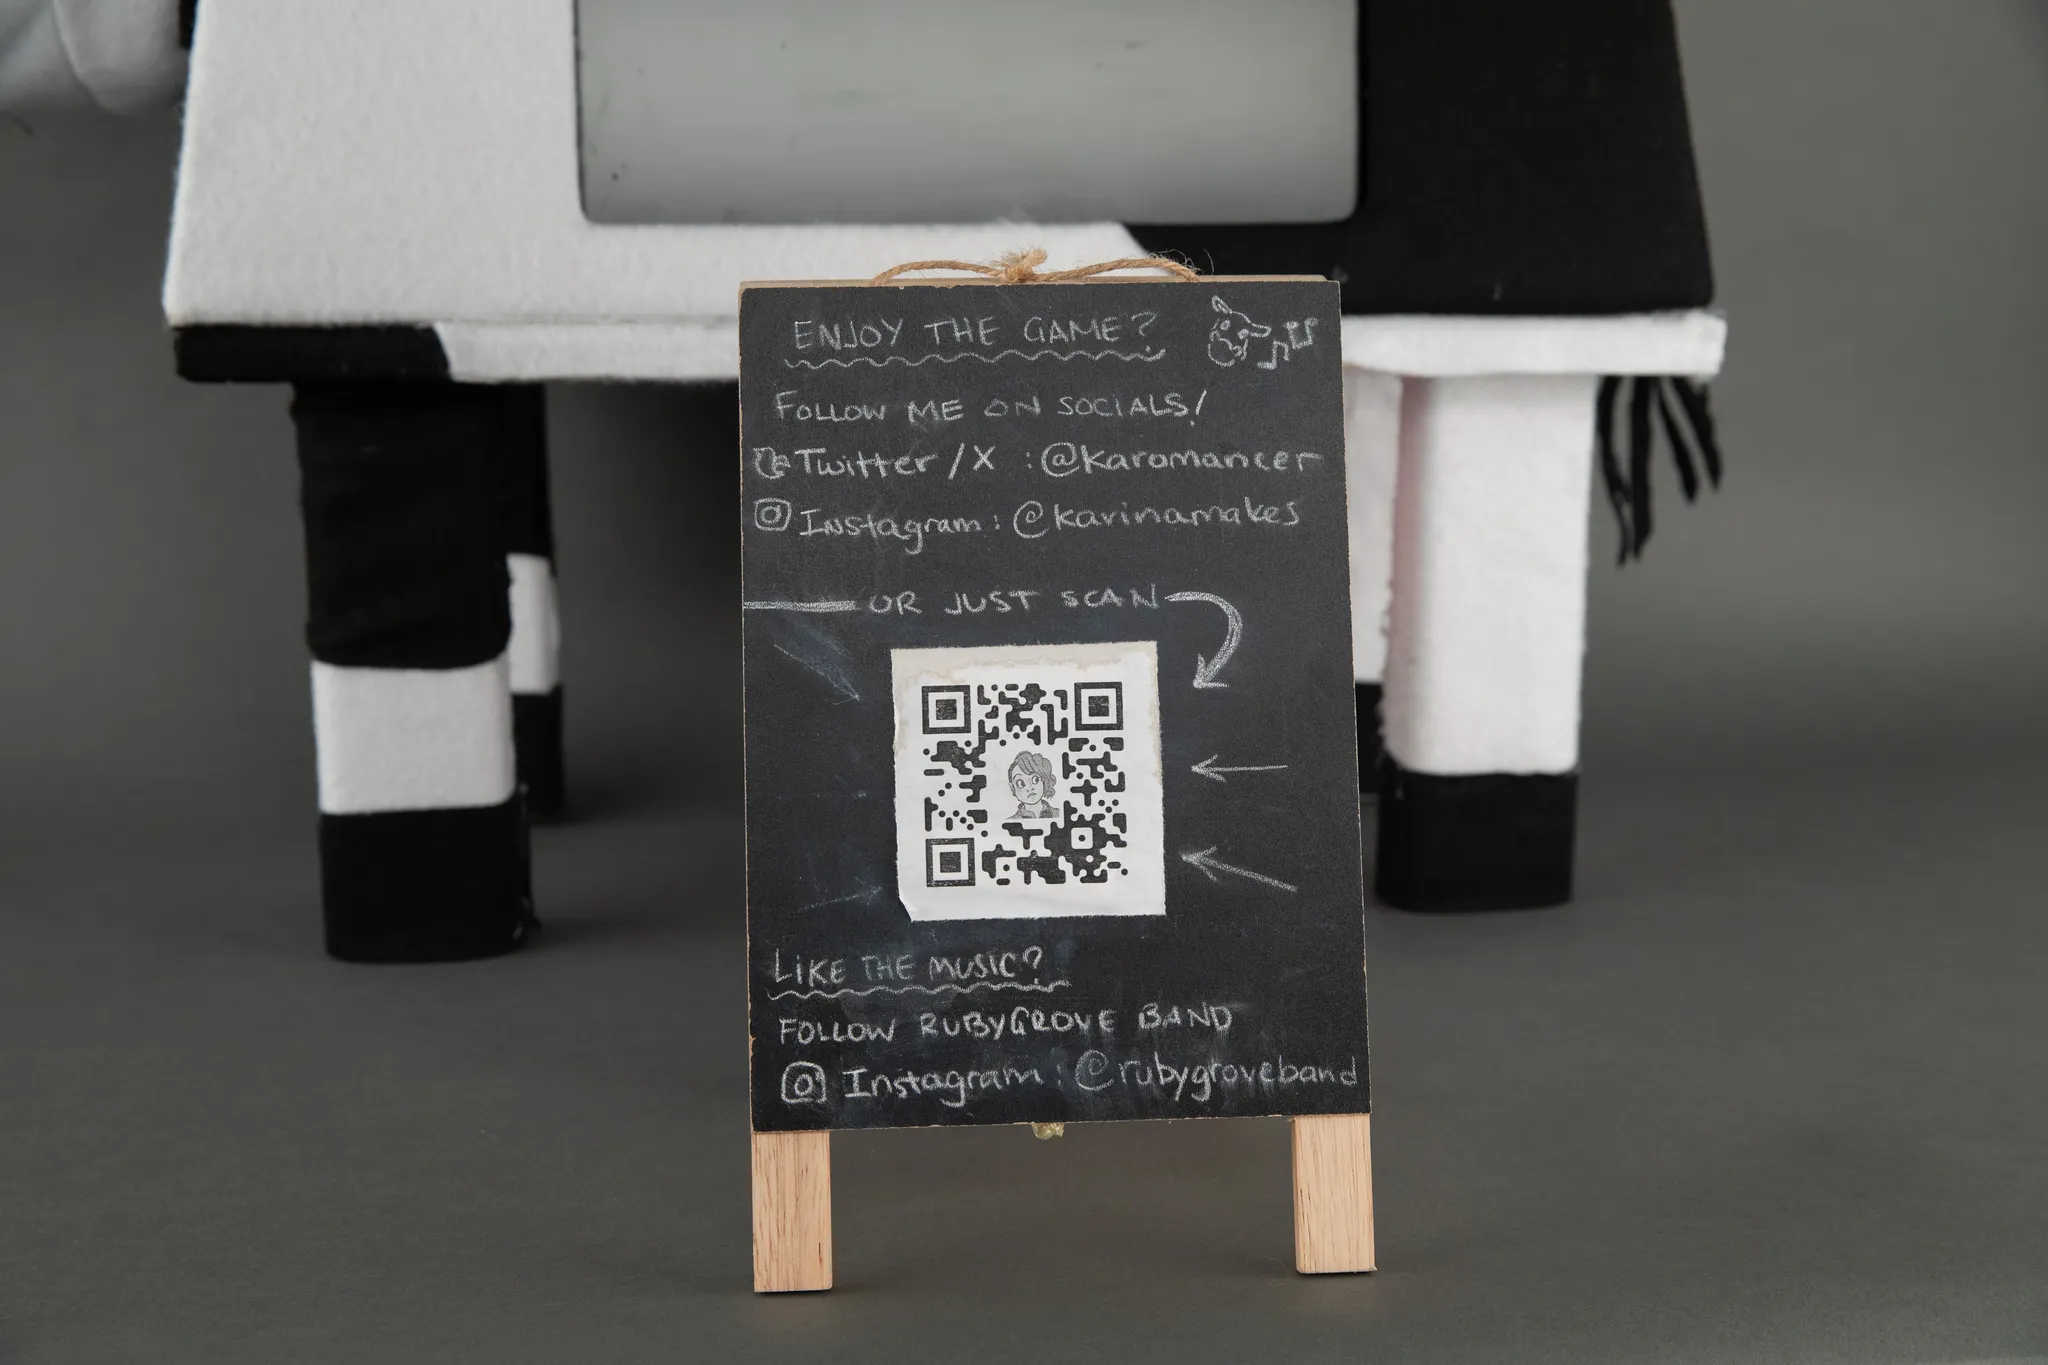 ENJOY THE GAME?
FOLLOW ME ON SOCIALS!
Twitter / X : @karomancer
Instagram: @karinamakes
OR JUST SCAN
LIKE THE MUSIC?
FOLLOW RUBYGROVE BAND
Instagram: @rubygroveband